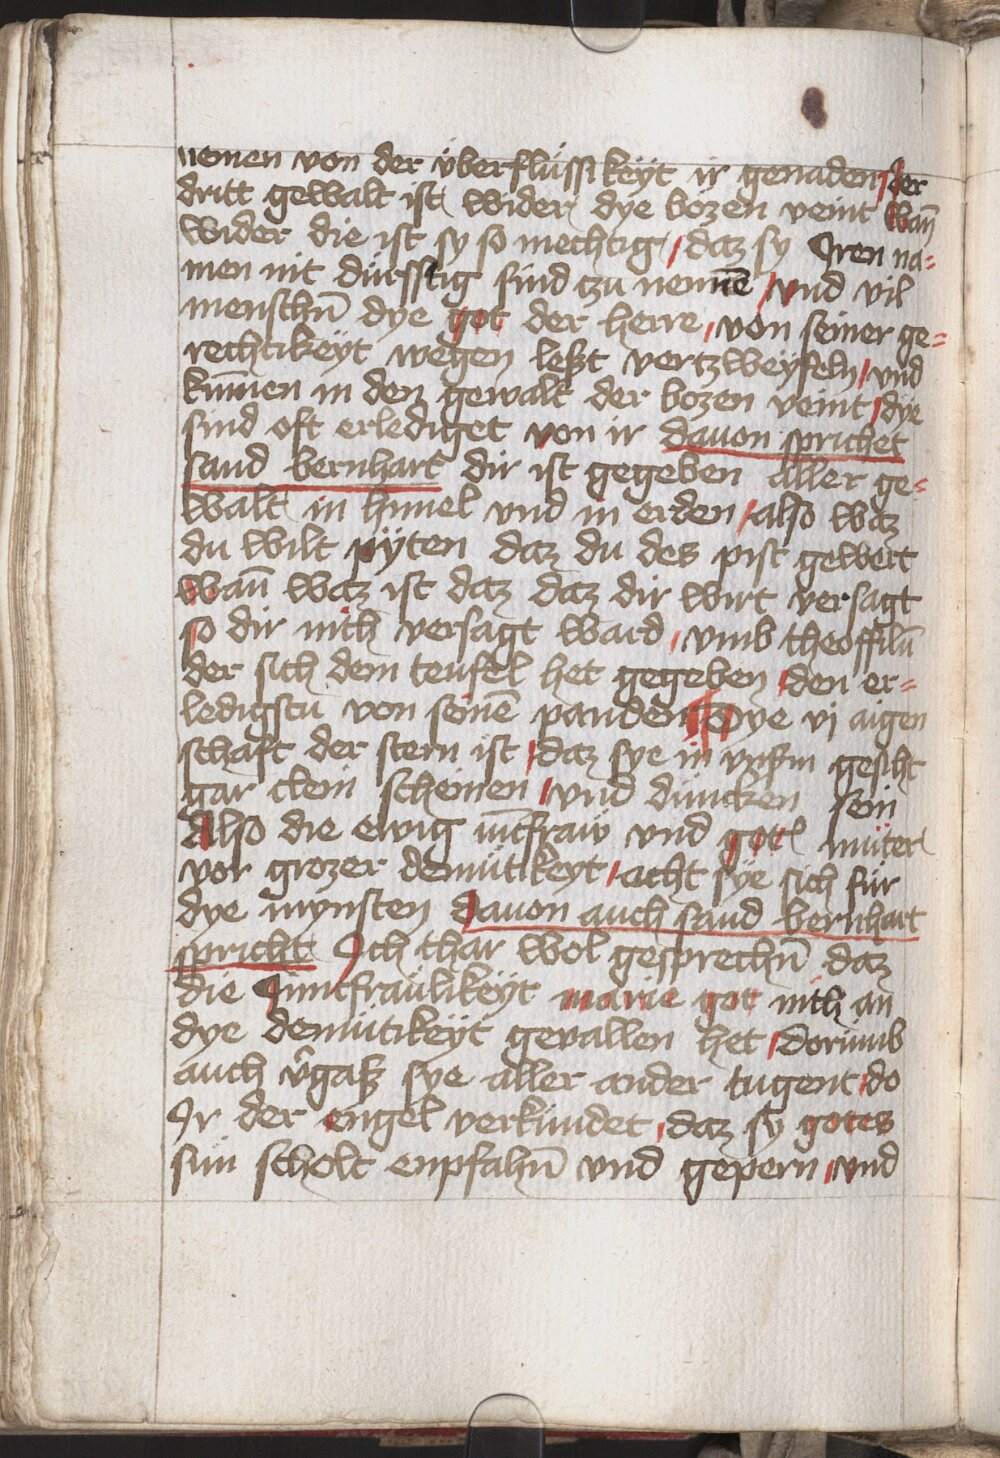 nemen von der überflüssikeyt ir genaden / der
dritt gewalt ist wider dye bozen veint wan̄
wider die ist sy so mechtig / daz sy Iren na=
men nit dürfftig sind czu nennē / vnd vil
menschn̄ dye got der herre / von seiner ge=
rechtikeyt wegen leßt vertzweyfeln / vnd
kūmen in den gewalt der bozen veint / dye
sind oft erlediget von ir dauon sprichet
sand bernhart dir ist gegeben aller ge=
walt in himel vnd in erden / also waz
du wilt pyten daz du des pist gewert
wan̄ waz ist daz daz dir wirt versagt
so dir nith versagt ward / vmb theoffilū
der sich dem teufel het gegeben / den er=
ledigstu von seinē panden Dye vj aigen
schaft der stern ist / daz sye in vnßm gesiht
gar clein scheinen / vnd düncken sein
Also die ewig iūcfraw vnd gotz müter
vor grozer demütikeyt / acht sye sich für
dye mynsten dauon auch sand bernhart
spricht Ich thar wol gesprechn̄ daz
die Junckfraülikeyt marie got nith an
dye demütikeyt geuallen het / dorumb
auch v̄gaß sye aller ander tugent / do
Ir der engel verkündet / daz sy gotes
sün scholt enpfahn̄ vnd gepern / vnd